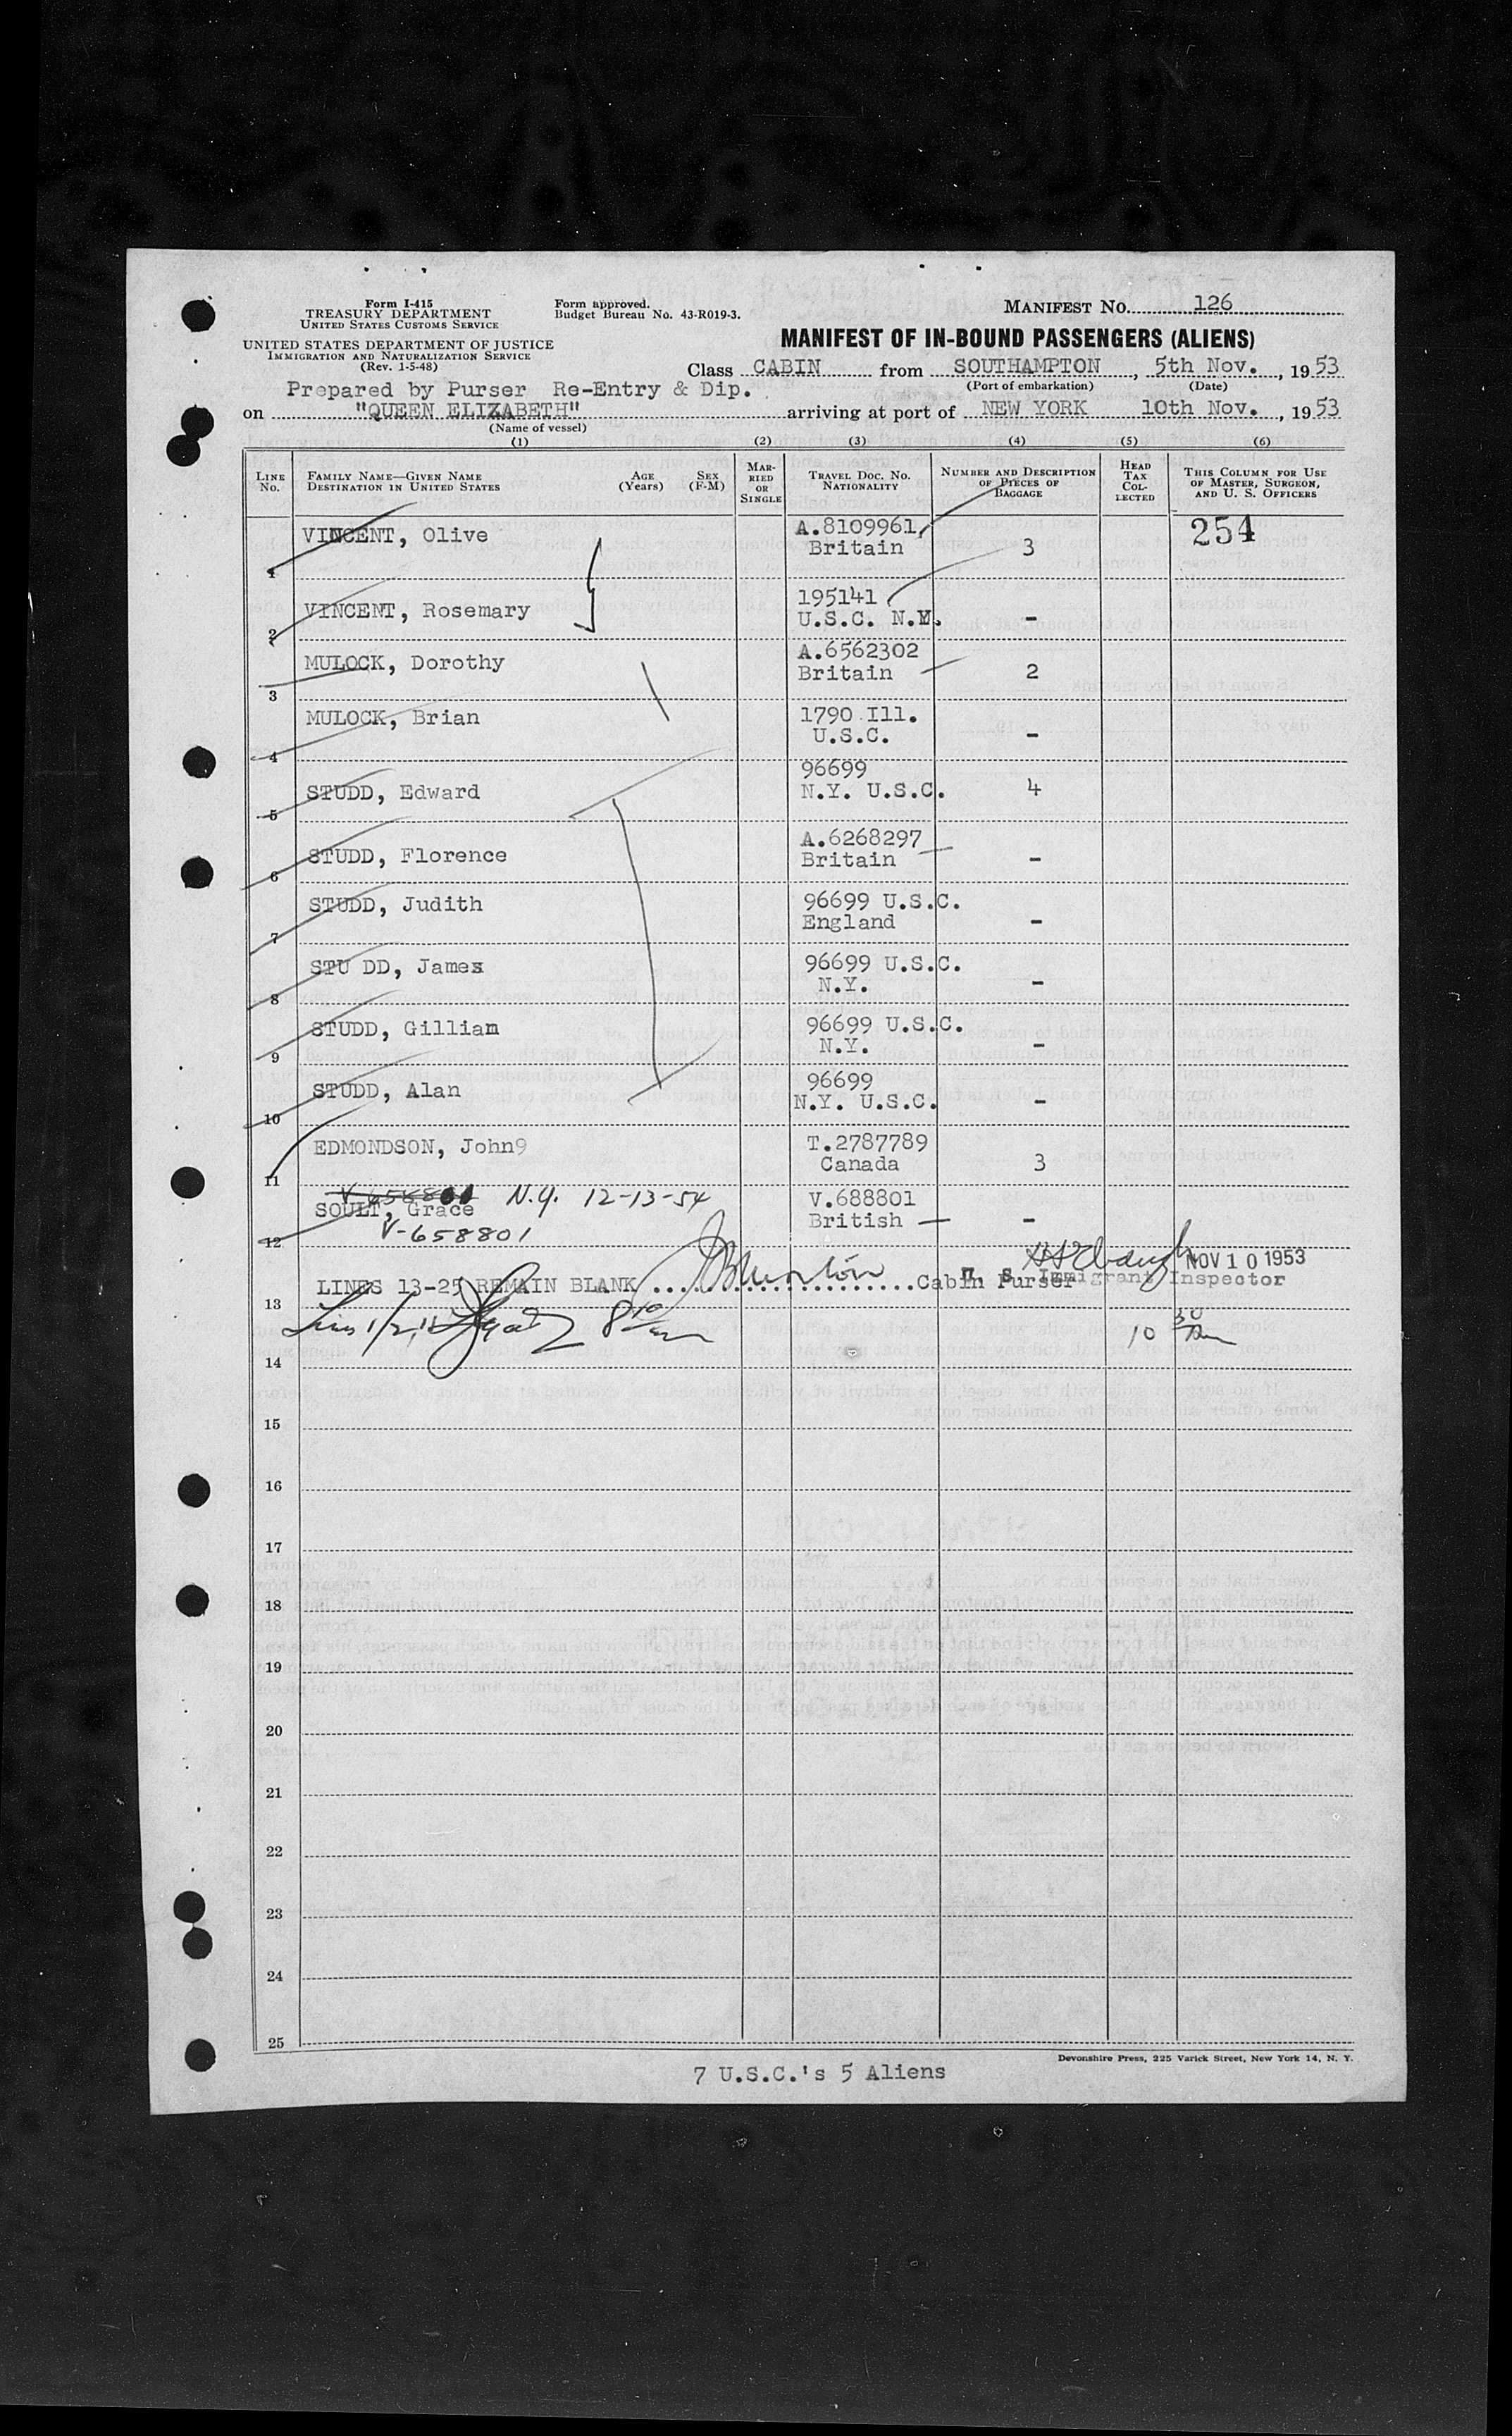 Form I-415
TREASURY DEPARTMENT
UNITED STATES CUSTOMS SERVICE
UNITED STATES DEPARTMENT OF JUSTICE
IMMIGRATION AND NATURALIZATION SERVICE
(Rev. 1-5-48)
Form approved.
Budget Bureau No. 43-R019-3.
MANIFEST No. 126
MANIFEST OF IN-BOUND PASSENGERS (ALIENS)
Class CABIN from SOUTHAMPTON, 5th Nov., 1953
(Port of embarkation) (Date)
Prepared by Purser Re-Entry & Dip.
on "QUEEN ELIZABETH" arriving at port of NEW YORK 10th Nov., 1953
(Name of vessel)
(1) (2) (3) (4) (5) (6)
LINE No. FAMILY NAME—GIVEN NAME DESTINATION IN UNITED STATES AGE (Years) SEX (F-M) MARRIED OR SINGLE TRAVEL DOC. No. NATIONALITY NUMBER AND DESCRIPTION OF PIECES OF BAGGAGE HEAD TAX COLLECTED THIS COLUMN FOR USE OF MASTER, SURGEON, AND U. S. OFFICERS
1 VINCENT, Olive A.8109961 Britain 3 254
2 VINCENT, Rosemary 195141 U.S.C. N.Y. -
3 MULOCK, Dorothy A.6562302 Britain 2
4 MULOCK, Brian 1790 Ill. U.S.C. -
5 STUDD, Edward 96699 N.Y. U.S.C. 4
6 STUDD, Florence A.6268297 Britain -
7 STUDD, Judith 96699 U.S.C. England -
8 STU DD, James 96699 U.S.C. N.Y. -
9 STUDD, Gillian 96699 U.S.C. N.Y. -
10 STUDD, Alan 96699 N.Y. U.S.C. -
11 EDMONDSON, John9 T.2787789 Canada 3
V-658800 N.Y. 12-13-54
12 SOULT, Grace V.688801 British -
V-658801
NOV 10 1953
13 LINES 13-25 REMAIN BLANK Cabin Purser U. S. Immigrant Inspector
14 8 10 10 30
15
16
17
18
19
20
21
22
23
24
25
Devonshire Press, 225 Varick Street, New York 14, N. Y.
7 U.S.C.'s 5 Aliens